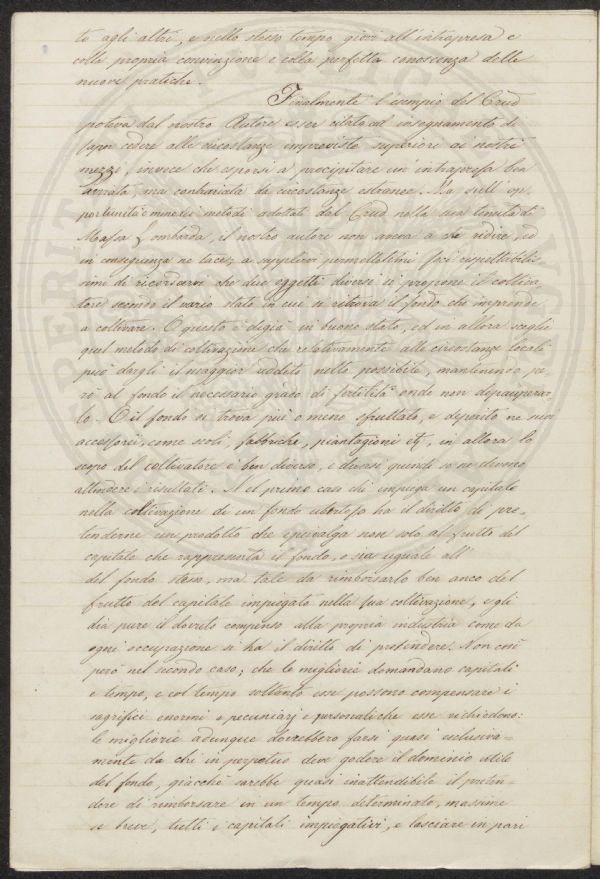 to agli altri, e nello stesso tempo giovi all'intrapresa e
colla propria convinzione e colla perfetta conoscenza delle
nuove pratiche.
Finalmente l'esempio del Crud
poteva dal nostro Autore esser citato ad insegnamento di
saper cedere alle circostanze impreviste superiori ai nostri
mezzi, invece che esporsi a precipitare un'intrapresa ben
avviata, ma contrariata da circostanze estranee. Ma sull'op
portunità e metodi adottati dal Crud nella sua tenuta di
Massa Lombarda, il nostro autore non aveva a che ridire, ed
in conseguenza ne tace; a supplirvi permettetemi Socj rispettabilis
simi di ricordarvi che due oggetti diversi si propone il coltiva
tore secondo il vario stato in cui si ritrova il fondo che imprende
a coltivare. O questo è digià in buono stato, ed in allora sceglie
quel metodo di coltivazione che relativamente alle circostanze locali
può dargli il maggior reddito netto possibile, mantenendo pe
rò al fondo il necessario grado di fertilità onde non depauperar
lo. O il fondo si trova più o meno sfruttato, e deperito ne suoi
accessorj, come scoli, fabbriche, piantagioni etc, in allora lo
scopo del coltivatore è ben diverso, e diversi quindi se ne devono
attendere i risultati. Nel primo caso chi impiega un capitale
nella coltivazione di un fondo ubertoso ha il diritto di pre-
tenderne un prodotto che equivalga non solo al frutto del
capitale che rappresenta il fondo, o sia uguale all'
del fondo stesso, ma tale da rimborsarlo ben anco del
frutto del capitale impiegato nella sua coltivazione, e gli
dia pure il dovuto compenso alla propria industria come da
ogni occupazione si ha il diritto di pretendere. Non così
però nel secondo caso; che le migliorie domandano capitali
e tempo, e col tempo soltanto esse possono compensare i
sagrifici enormi e pecuniarj e personali che esse richiedono:
le migliorie adunque dovrebbero farsi quasi esclusiva-
mente da chi in perpetuo deve godere il dominio utile
del fondo, giacchè sarebbe quasi inattendibile il preten-
dere di rimborsare in un tempo determinato, massime
se breve, tutti i capitali impiegativi, e lasciare in pari